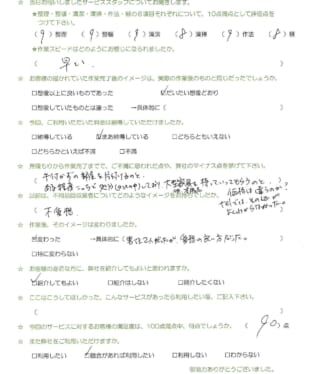 ☆ 当日お伺いしましたサービススタッフについてお聞きします。
★整理・整頓・清潔・清掃・作法・躾の各項目それぞれについて、10点満点として評価点を
つけて下さい。
( 9 ) 整理 ( 9 ) 整頓 ( 9 ) 清潔 ( 8 ) 清掃 ( 9 ) 作法 ( 8 ) 躾
★作業スピードはどのようにお感じになられましたか。
( 早い )
☆ お客様の描かれていた作業完了後のイメージは、実際の作業後のものと同じだったでしょうか。
□想像以上に良いものであった ☑だいたい想像どおり
□想像していたものとは違った →具体的に (
☆ 今回、ご利用いただいた料金は納得していただけましたか。
□納得している ☑まあ納得している □どちらともいえない
□どちらかといえば不満 □不満
☆ 見積もりから作業完了までで、ご不満に思われた点や、弊社のマイナス点を挙げて下さい。
☆ 以前は、不用品回収業者についてどのようなイメージをお持ちでしたか。
☆ 作業後、そのイメージは変わりましたか。
☑変わった →具体的に
□特に変わらない
☆ お客様の身近な方に、弊社を紹介してもよいと思われますか。
☑紹介してもよい □紹介はしない □紹介したくない
☆ ここはこうしてほしかった、こんなサービスがあったら利用したい等、ご記入下さい。
(
☆ 今回のサービスに対するお客様の満足度は、100点満点中、何点でしょうか。 ( 90 点
☆ また弊社をご利用いただけますか。
□利用したい ☑機会があれば利用したい □利用しない □わからない
御協力ありがとうございました。